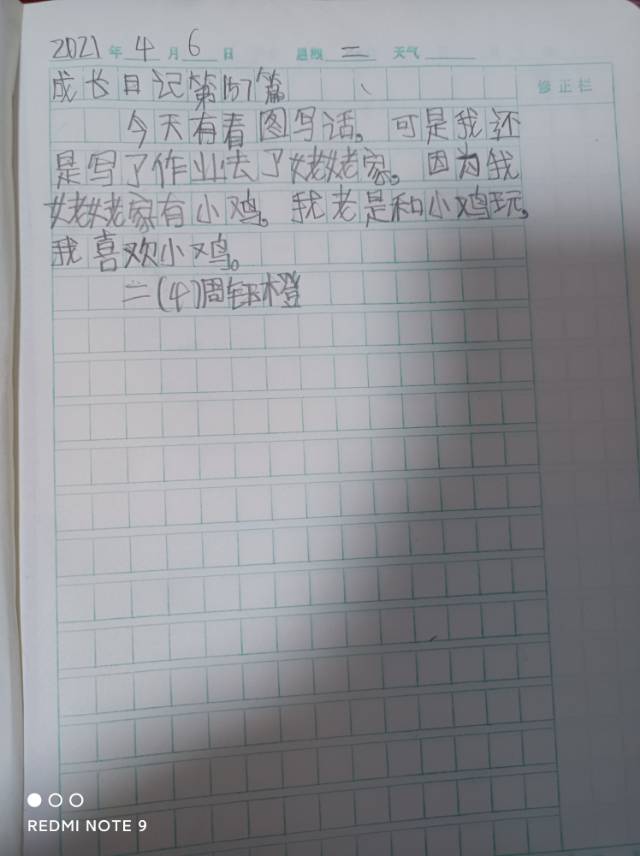 2021年4月6日 星期二 天气
成长日记第157篇
修正栏
今天有看图写话。可是我还
是写了作业去了姥姥家。因为我
姥姥家有小鸡。我老是和小鸡玩。
我喜欢小鸡。
二(4)周钰橙
REDMI NOTE 9